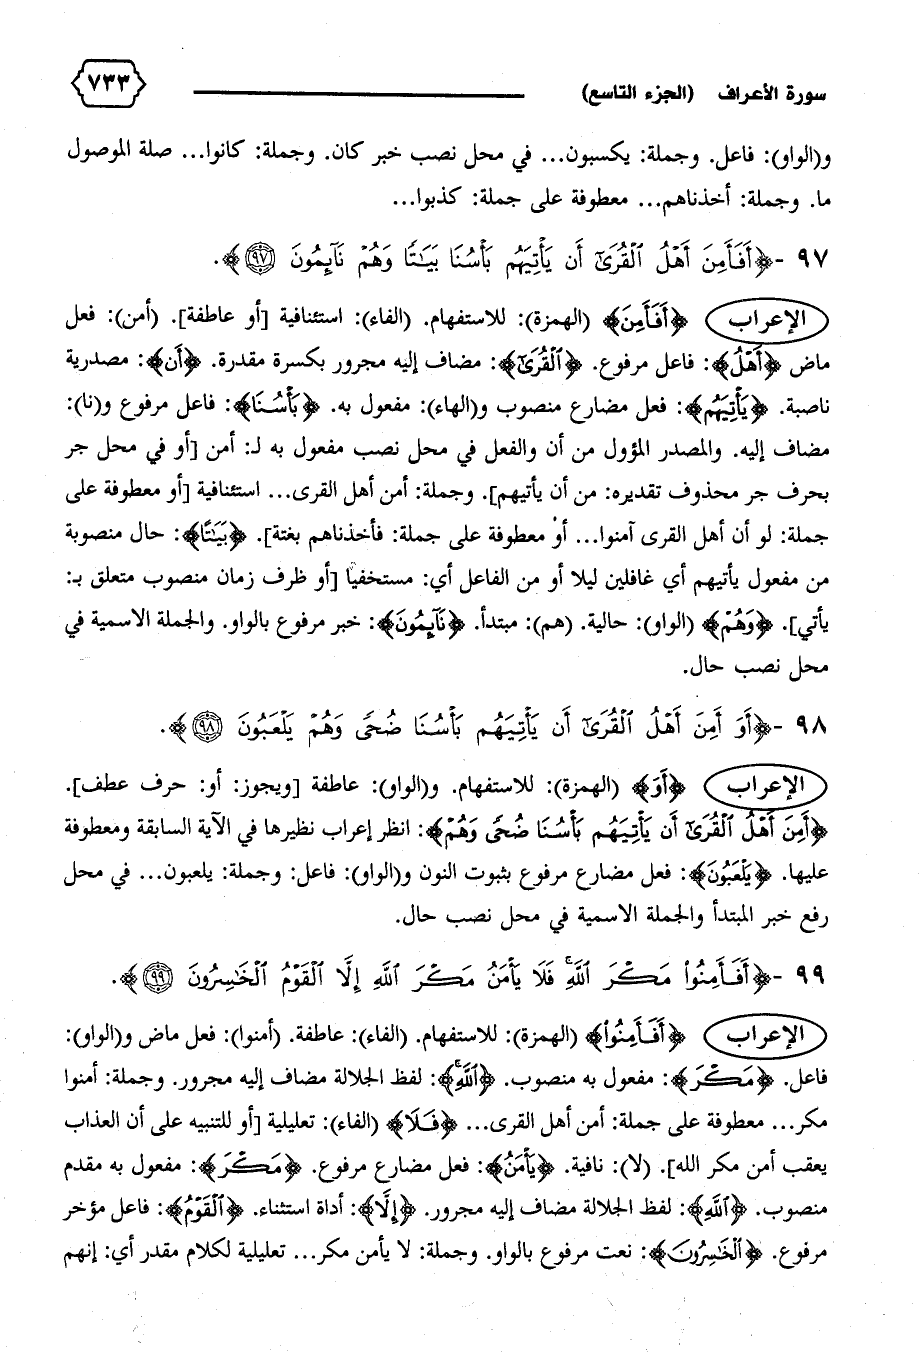 سورة الأعراف (الجزء التاسع) ٧٣٣
و(الواو): فاعل. وجملة: يكسبون... في محل نصب خبر كان. وجملة: كانوا... صلة الموصول
ما. وجملة: أخذناهم... معطوفة على جملة: كذبوا...
٩٧ -﴿أَفَأَمِنَ أَهْلُ ٱلْقُرَىٰٓ أَن يَأْتِيَهُم بَأْسُنَا بَيَٰتًا وَهُمْ نَآئِمُونَ ۝٩٧﴾.
الإعراب ﴿أَفَأَمِنَ﴾ (الهمزة): للاستفهام. (الفاء): استئنافية [أو عاطفة]. (أمن): فعل
ماض ﴿أَهْلُ﴾: فاعل مرفوع. ﴿ٱلْقُرَىٰٓ﴾: مضاف إليه مجرور بكسرة مقدرة. ﴿أَن﴾: مصدرية
ناصبة. ﴿يَأْتِيَهُم﴾: فعل مضارع منصوب و(الهاء): مفعول به. ﴿بَأْسُنَا﴾: فاعل مرفوع و(نا):
مضاف إليه. والمصدر المؤول من أن والفعل في محل نصب مفعول به لـ: أمن [أو في محل جر
بحرف جر محذوف تقديره: من أن يأتيهم]. وجملة: أمن أهل القرى... استئنافية [أو معطوفة على
جملة: لو أن أهل القرى آمنوا... أو معطوفة على جملة: فأخذناهم بغتة]. ﴿بَيَٰتًا﴾: حال منصوبة
من مفعول يأتيهم أي غافلين ليلا أو من الفاعل أي: مستخفيًا [أو ظرف زمان منصوب متعلق بـ:
يأتي]. ﴿وَهُمْ﴾ (الواو): حالية. (هم): مبتدأ. ﴿نَآئِمُونَ﴾: خبر مرفوع بالواو. والجملة الاسمية في
محل نصب حال.
٩٨ -﴿أَوَ أَمِنَ أَهْلُ ٱلْقُرَىٰٓ أَن يَأْتِيَهُم بَأْسُنَا ضُحًى وَهُمْ يَلْعَبُونَ ۝٩٨﴾.
الإعراب ﴿أَوَ﴾ (الهمزة): للاستفهام. و(الواو): عاطفة [ويجوز: أو: حرف عطف].
﴿أَمِنَ أَهْلُ ٱلْقُرَىٰٓ أَن يَأْتِيَهُم بَأْسُنَا ضُحًى وَهُمْ﴾: انظر إعراب نظيرها في الآية السابقة ومعطوفة
عليها. ﴿يَلْعَبُونَ﴾: فعل مضارع مرفوع بثبوت النون و(الواو): فاعل: وجملة: يلعبون... في محل
رفع خبر المبتدأ والجملة الاسمية في محل نصب حال.
٩٩ -﴿أَفَأَمِنُوا۟ مَكْرَ ٱللَّهِ ۚ فَلَا يَأْمَنُ مَكْرَ ٱللَّهِ إِلَّا ٱلْقَوْمُ ٱلْخَٰسِرُونَ ۝٩٩﴾.
الإعراب ﴿أَفَأَمِنُوا۟﴾ (الهمزة): للاستفهام. (الفاء): عاطفة. (أمنوا): فعل ماض و(الواو):
فاعل. ﴿مَكْرَ﴾: مفعول به منصوب. ﴿ٱللَّهِ ۚ﴾: لفظ الجلالة مضاف إليه مجرور. وجملة: أمنوا
مكر... معطوفة على جملة: أمن أهل القرى... ﴿فَلَا﴾ (الفاء): تعليلية [أو للتنبيه على أن العذاب
يعقب أمن مكر الله]. (لا): نافية. ﴿يَأْمَنُ﴾: فعل مضارع مرفوع. ﴿مَكْرَ﴾: مفعول به مقدم
منصوب. ﴿ٱللَّهِ﴾: لفظ الجلالة مضاف إليه مجرور. ﴿إِلَّا﴾: أداة استثناء. ﴿ٱلْقَوْمُ﴾: فاعل مؤخر
مرفوع. ﴿ٱلْخَٰسِرُونَ﴾: نعت مرفوع بالواو. وجملة: لا يأمن مكر... تعليلية لكلام مقدر أي: إنهم